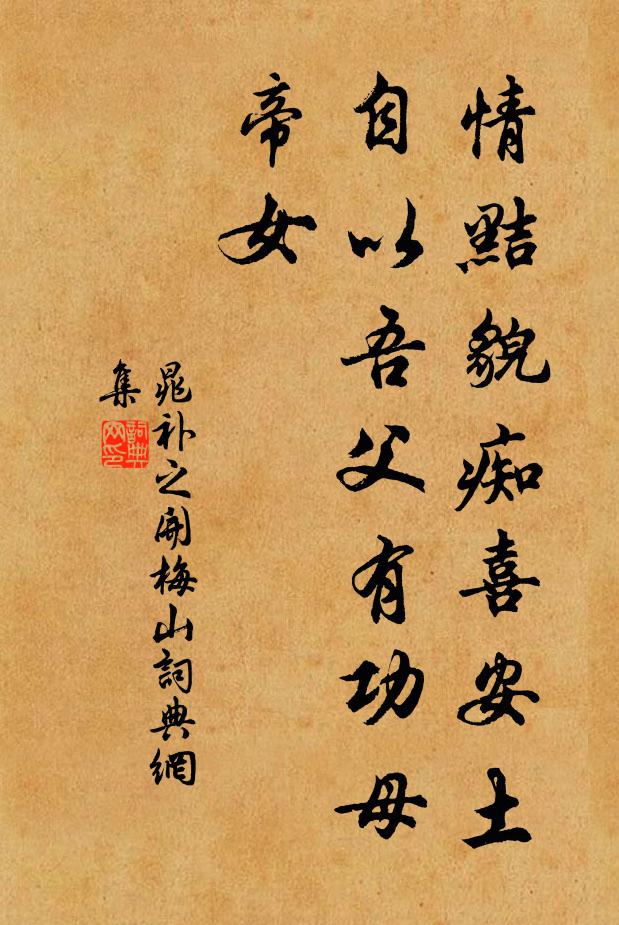 情黠貌痴喜安土
自以吾父有功母
帝女
晁补之開梅山詞典網
集
詞典
网印